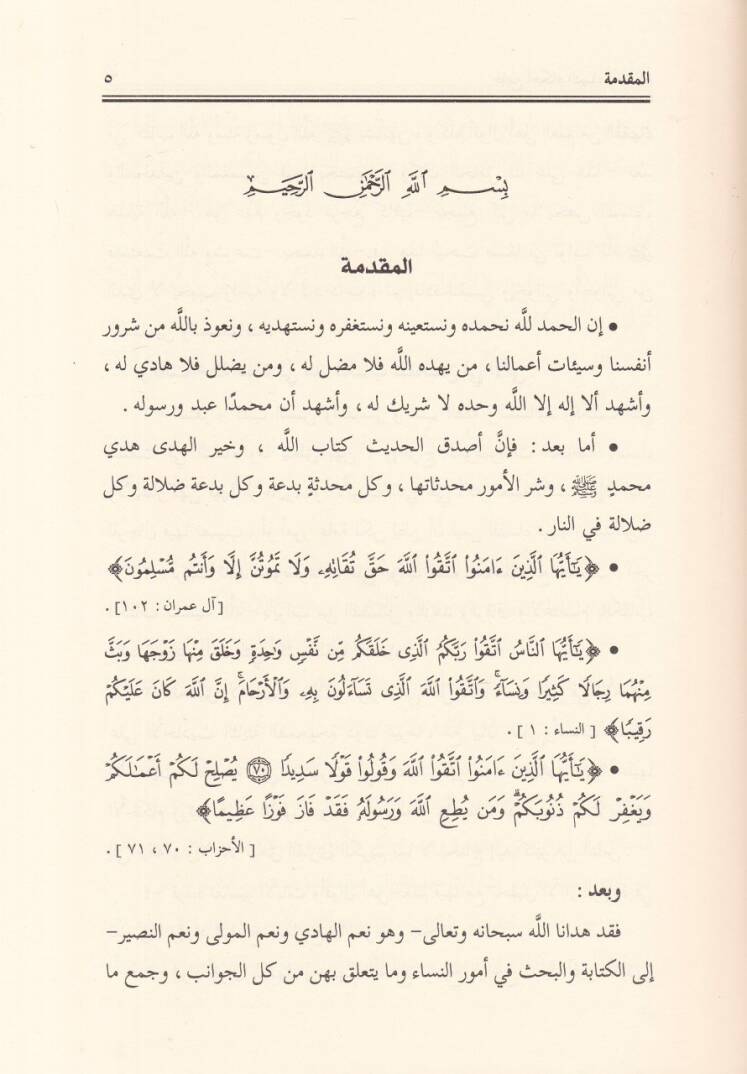 المقدمة ٥
بِسْمِ ٱللَّهِ ٱلرَّحْمَٰنِ ٱلرَّحِيمِ
المقدمة
• إن الحمد للَّه نحمده ونستعينه ونستغفره ونستهديه ، ونعوذ باللَّه من شرور
أنفسنا وسيئات أعمالنا ، من يهده اللَّه فلا مضل له ، ومن يضلل فلا هادي له ،
وأشهد ألا إله إلا اللَّه وحده لا شريك له ، وأشهد أن محمدًا عبد ورسوله .
• أما بعد : فإنَّ أصدق الحديث كتاب اللَّه ، وخير الهدى هدي
محمدٍ ﷺ ، وشر الأمور محدثاتها ، وكل محدثةٍ بدعة وكل بدعة ضلالة وكل
ضلالة في النار .
• ﴿يَٰٓأَيُّهَا ٱلَّذِينَ ءَامَنُوا۟ ٱتَّقُوا۟ ٱللَّهَ حَقَّ تُقَاتِهِۦ وَلَا تَمُوتُنَّ إِلَّا وَأَنتُم مُّسْلِمُونَ﴾
[آل عمران : ١٠٢] .
• ﴿يَٰٓأَيُّهَا ٱلنَّاسُ ٱتَّقُوا۟ رَبَّكُمُ ٱلَّذِى خَلَقَكُم مِّن نَّفْسٍ وَٰحِدَةٍ وَخَلَقَ مِنْهَا زَوْجَهَا وَبَثَّ
مِنْهُمَا رِجَالًا كَثِيرًا وَنِسَآءً ۚ وَٱتَّقُوا۟ ٱللَّهَ ٱلَّذِى تَسَآءَلُونَ بِهِۦ وَٱلْأَرْحَامَ ۚ إِنَّ ٱللَّهَ كَانَ عَلَيْكُمْ
رَقِيبًا﴾ [ النساء : ١ ] .
• ﴿يَٰٓأَيُّهَا ٱلَّذِينَ ءَامَنُوا۟ ٱتَّقُوا۟ ٱللَّهَ وَقُولُوا۟ قَوْلًا سَدِيدًا ٧٠ يُصْلِحْ لَكُمْ أَعْمَٰلَكُمْ
وَيَغْفِرْ لَكُمْ ذُنُوبَكُمْ ۗ وَمَن يُطِعِ ٱللَّهَ وَرَسُولَهُۥ فَقَدْ فَازَ فَوْزًا عَظِيمًا﴾
[ الأحزاب : ٧٠ ، ٧١ ] .
وبعد :
فقد هدانا اللَّه سبحانه وتعالى– وهو نعم الهادي ونعم المولى ونعم النصير–
إلى الكتابة والبحث في أمور النساء وما يتعلق بهن من كل الجوانب ، وجمع ما